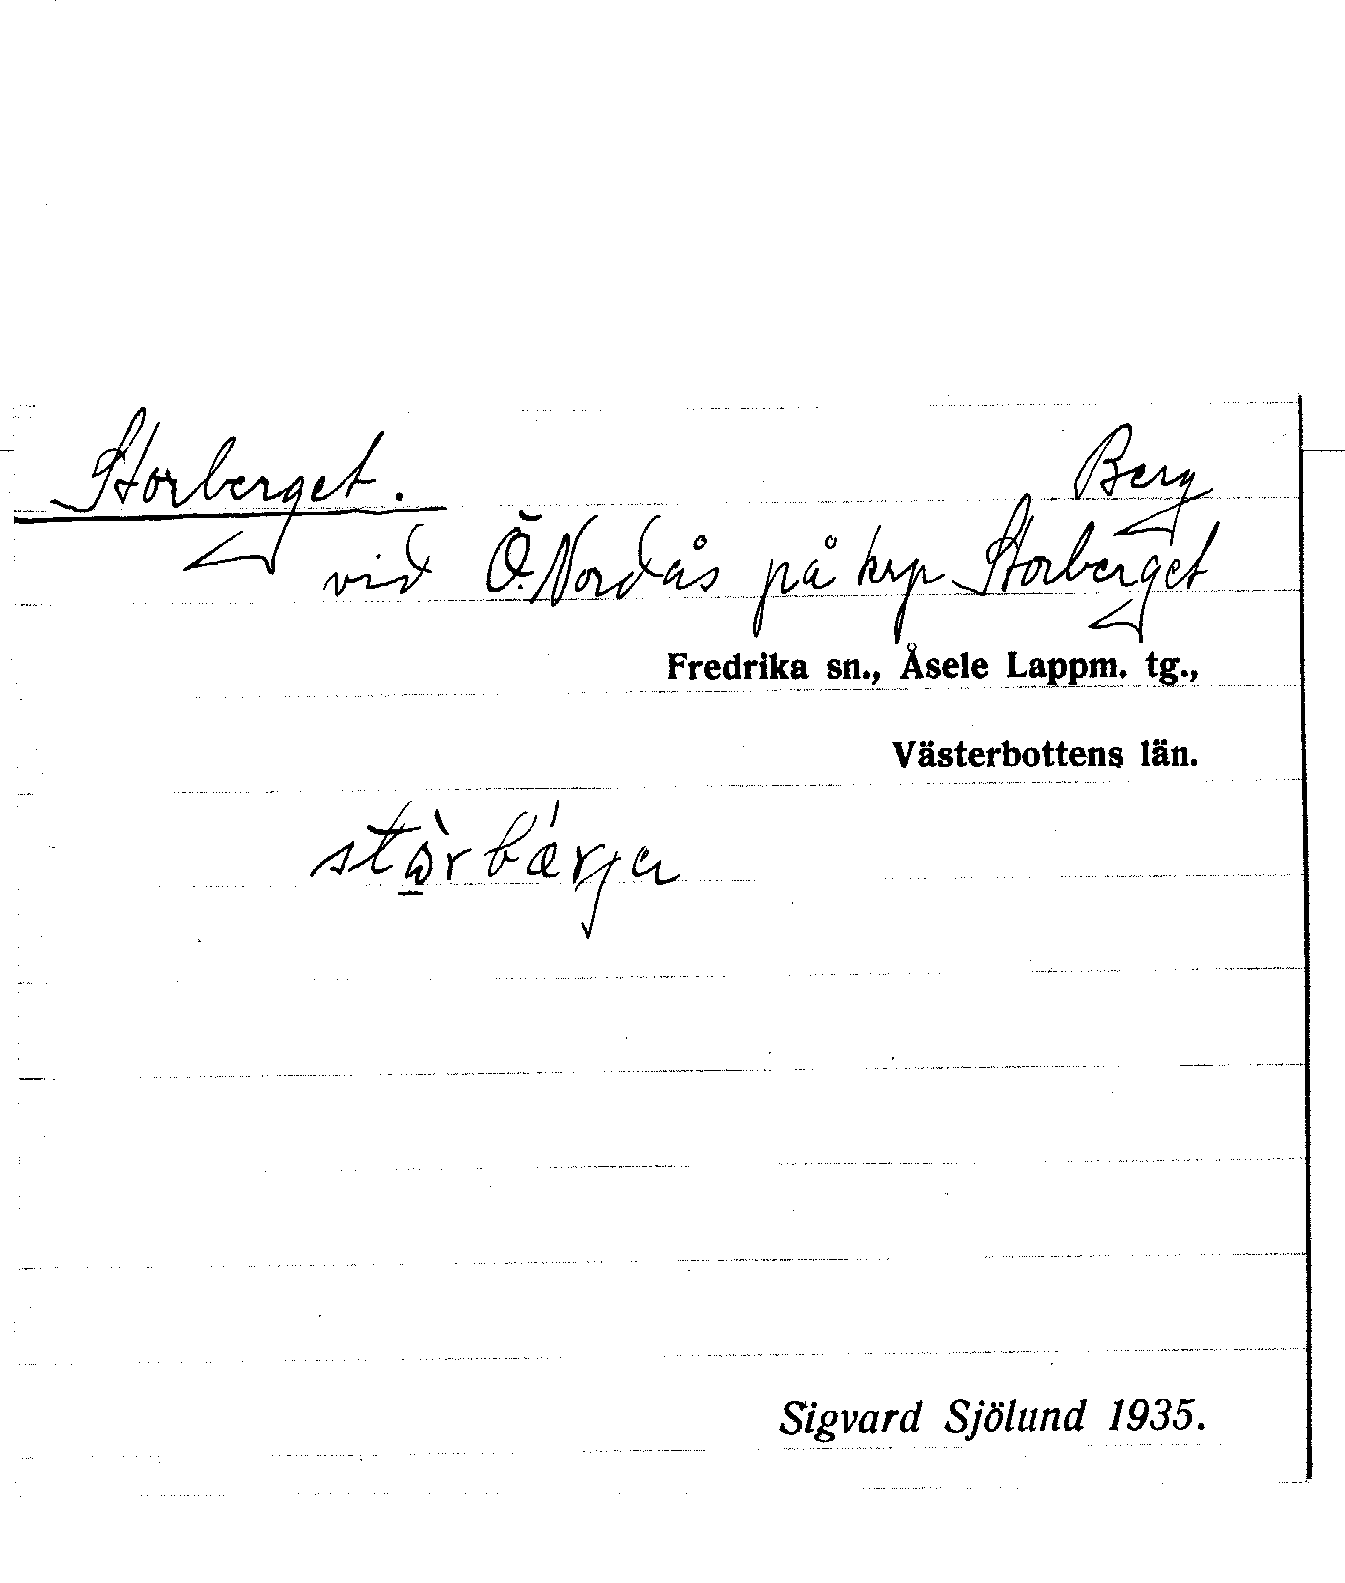 Storberget. Berg
vid Ö. Nordås på krp Storberget
Fredrika sn., Åsele Lappm. tg.,
Västerbottens län.
Sigvard Sjölund 1935.